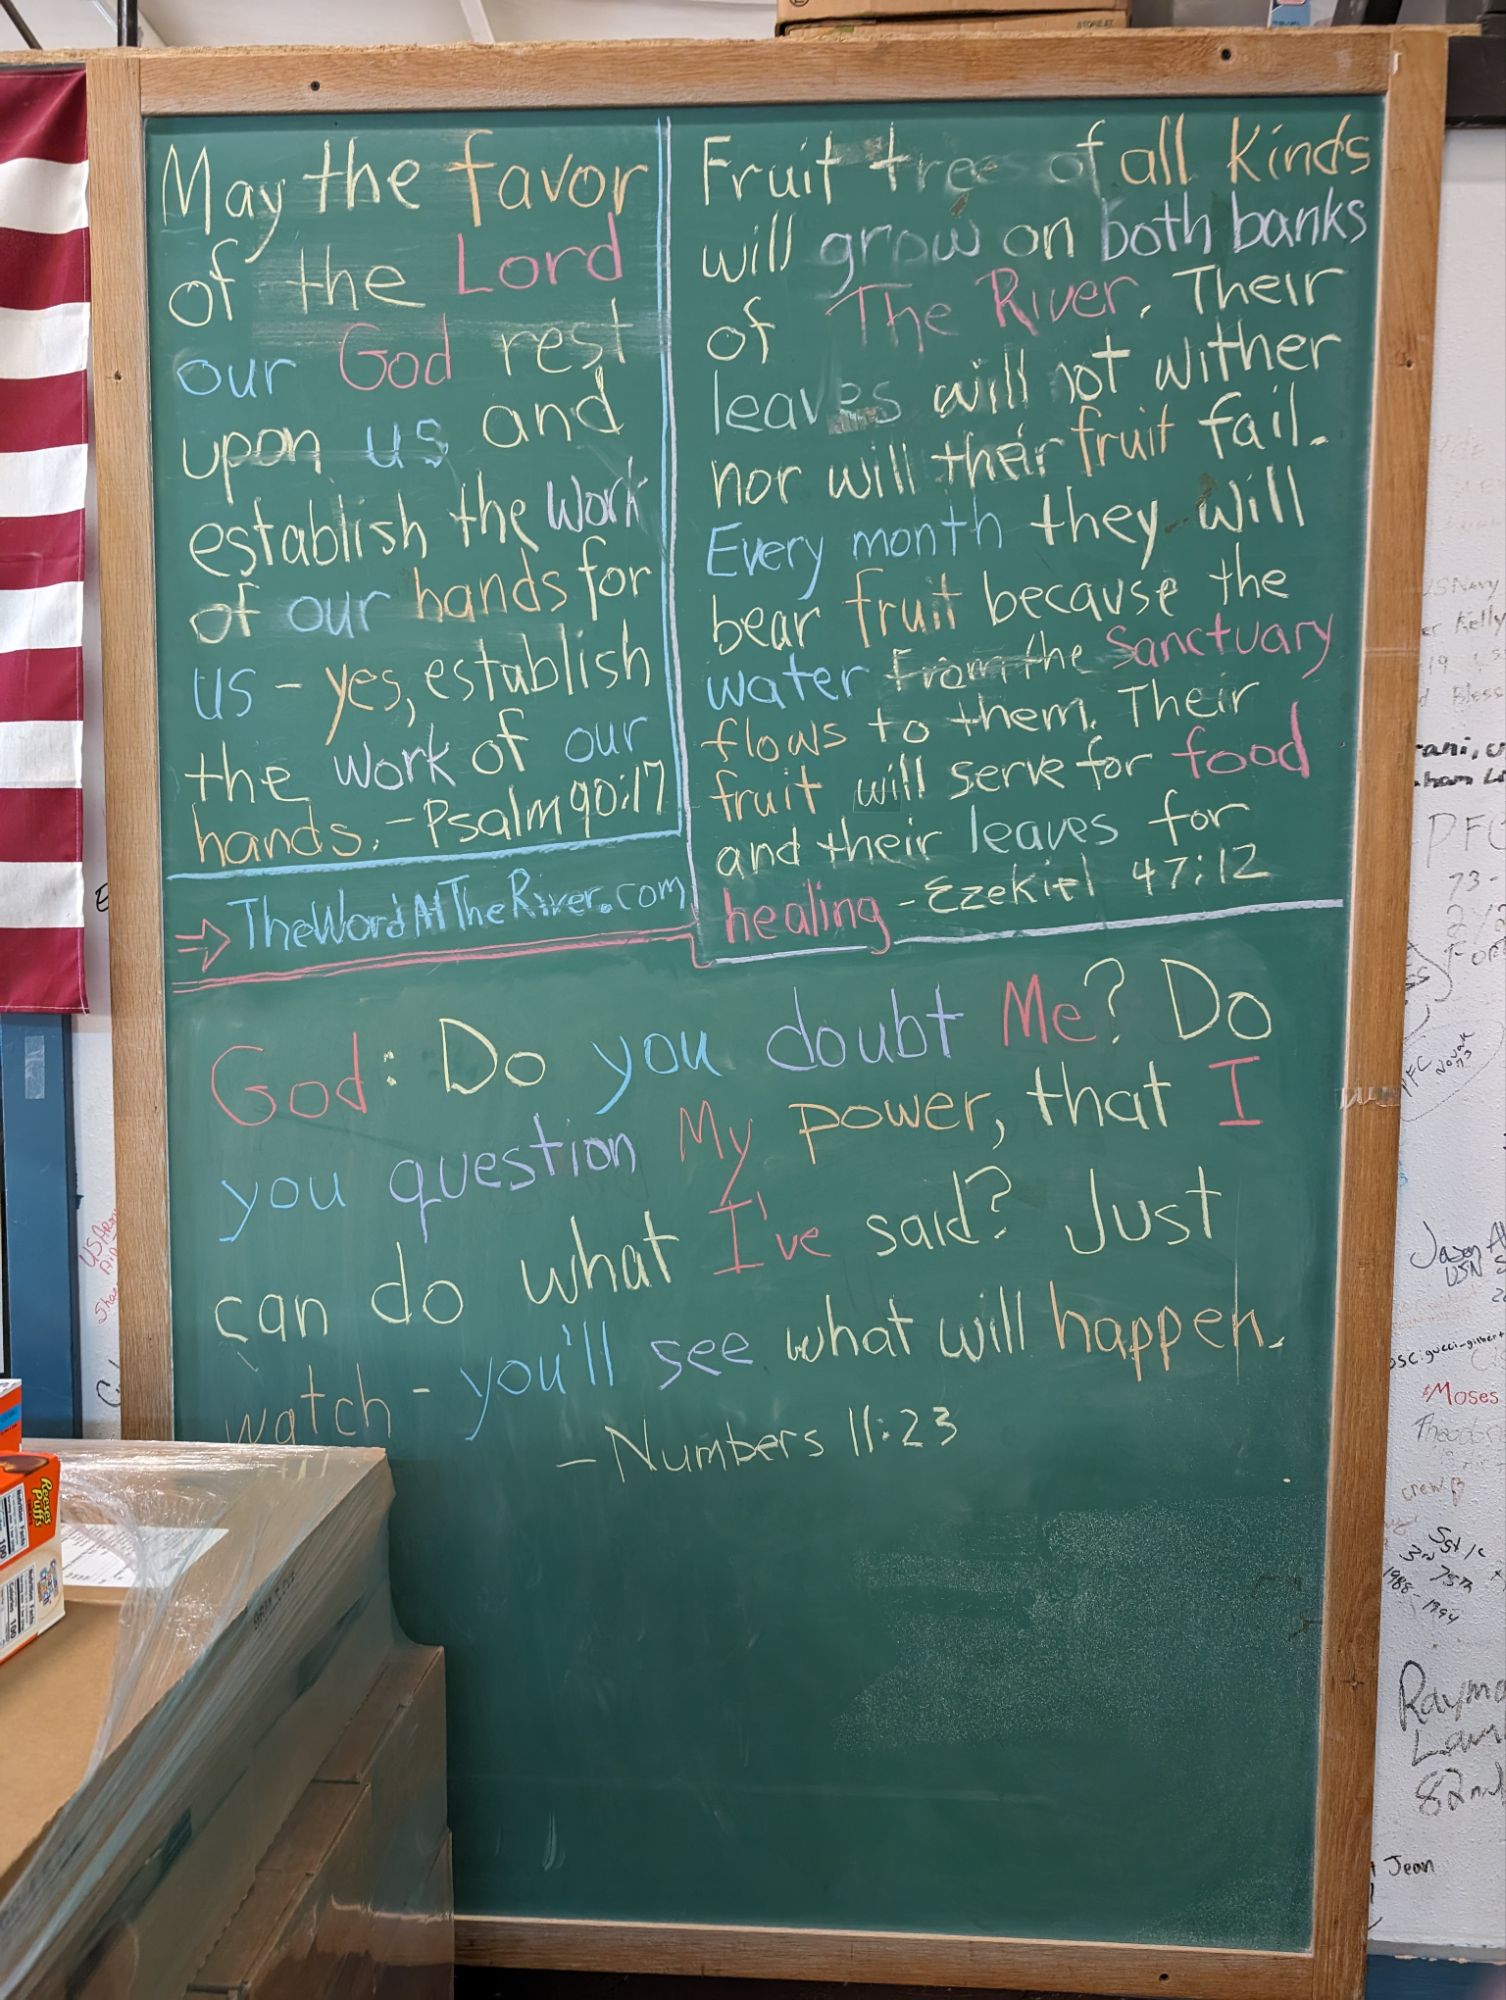 May the favor
of the Lord
our God rest
upon us and
establish the work
of our hands for
us - yes, establish
the work of our
hands. - Psalm 90:17
⇒ TheWordAtTheRiver.com
Fruit trees of all kinds
will grow on both banks
of The River. Their
leaves will not wither
nor will their fruit fail.
Every month they will
bear fruit because the
water from the Sanctuary
flows to them. Their
fruit will serve for food
and their leaves for
healing - Ezekiel 47:12
God: Do you doubt Me? Do
you question My power, that I
can do what I've said? Just
watch - you'll see what will happen.
- Numbers 11:23
Reese's
Puffs
Nutrition Facts
100
Nutrition Facts
Calories 100
US Navy
Kelly
PFC
73-
PFC Novak
73
US Army
Jason
USN
Moses
crew
3rd 75th
1988-1994
82nd
Jean